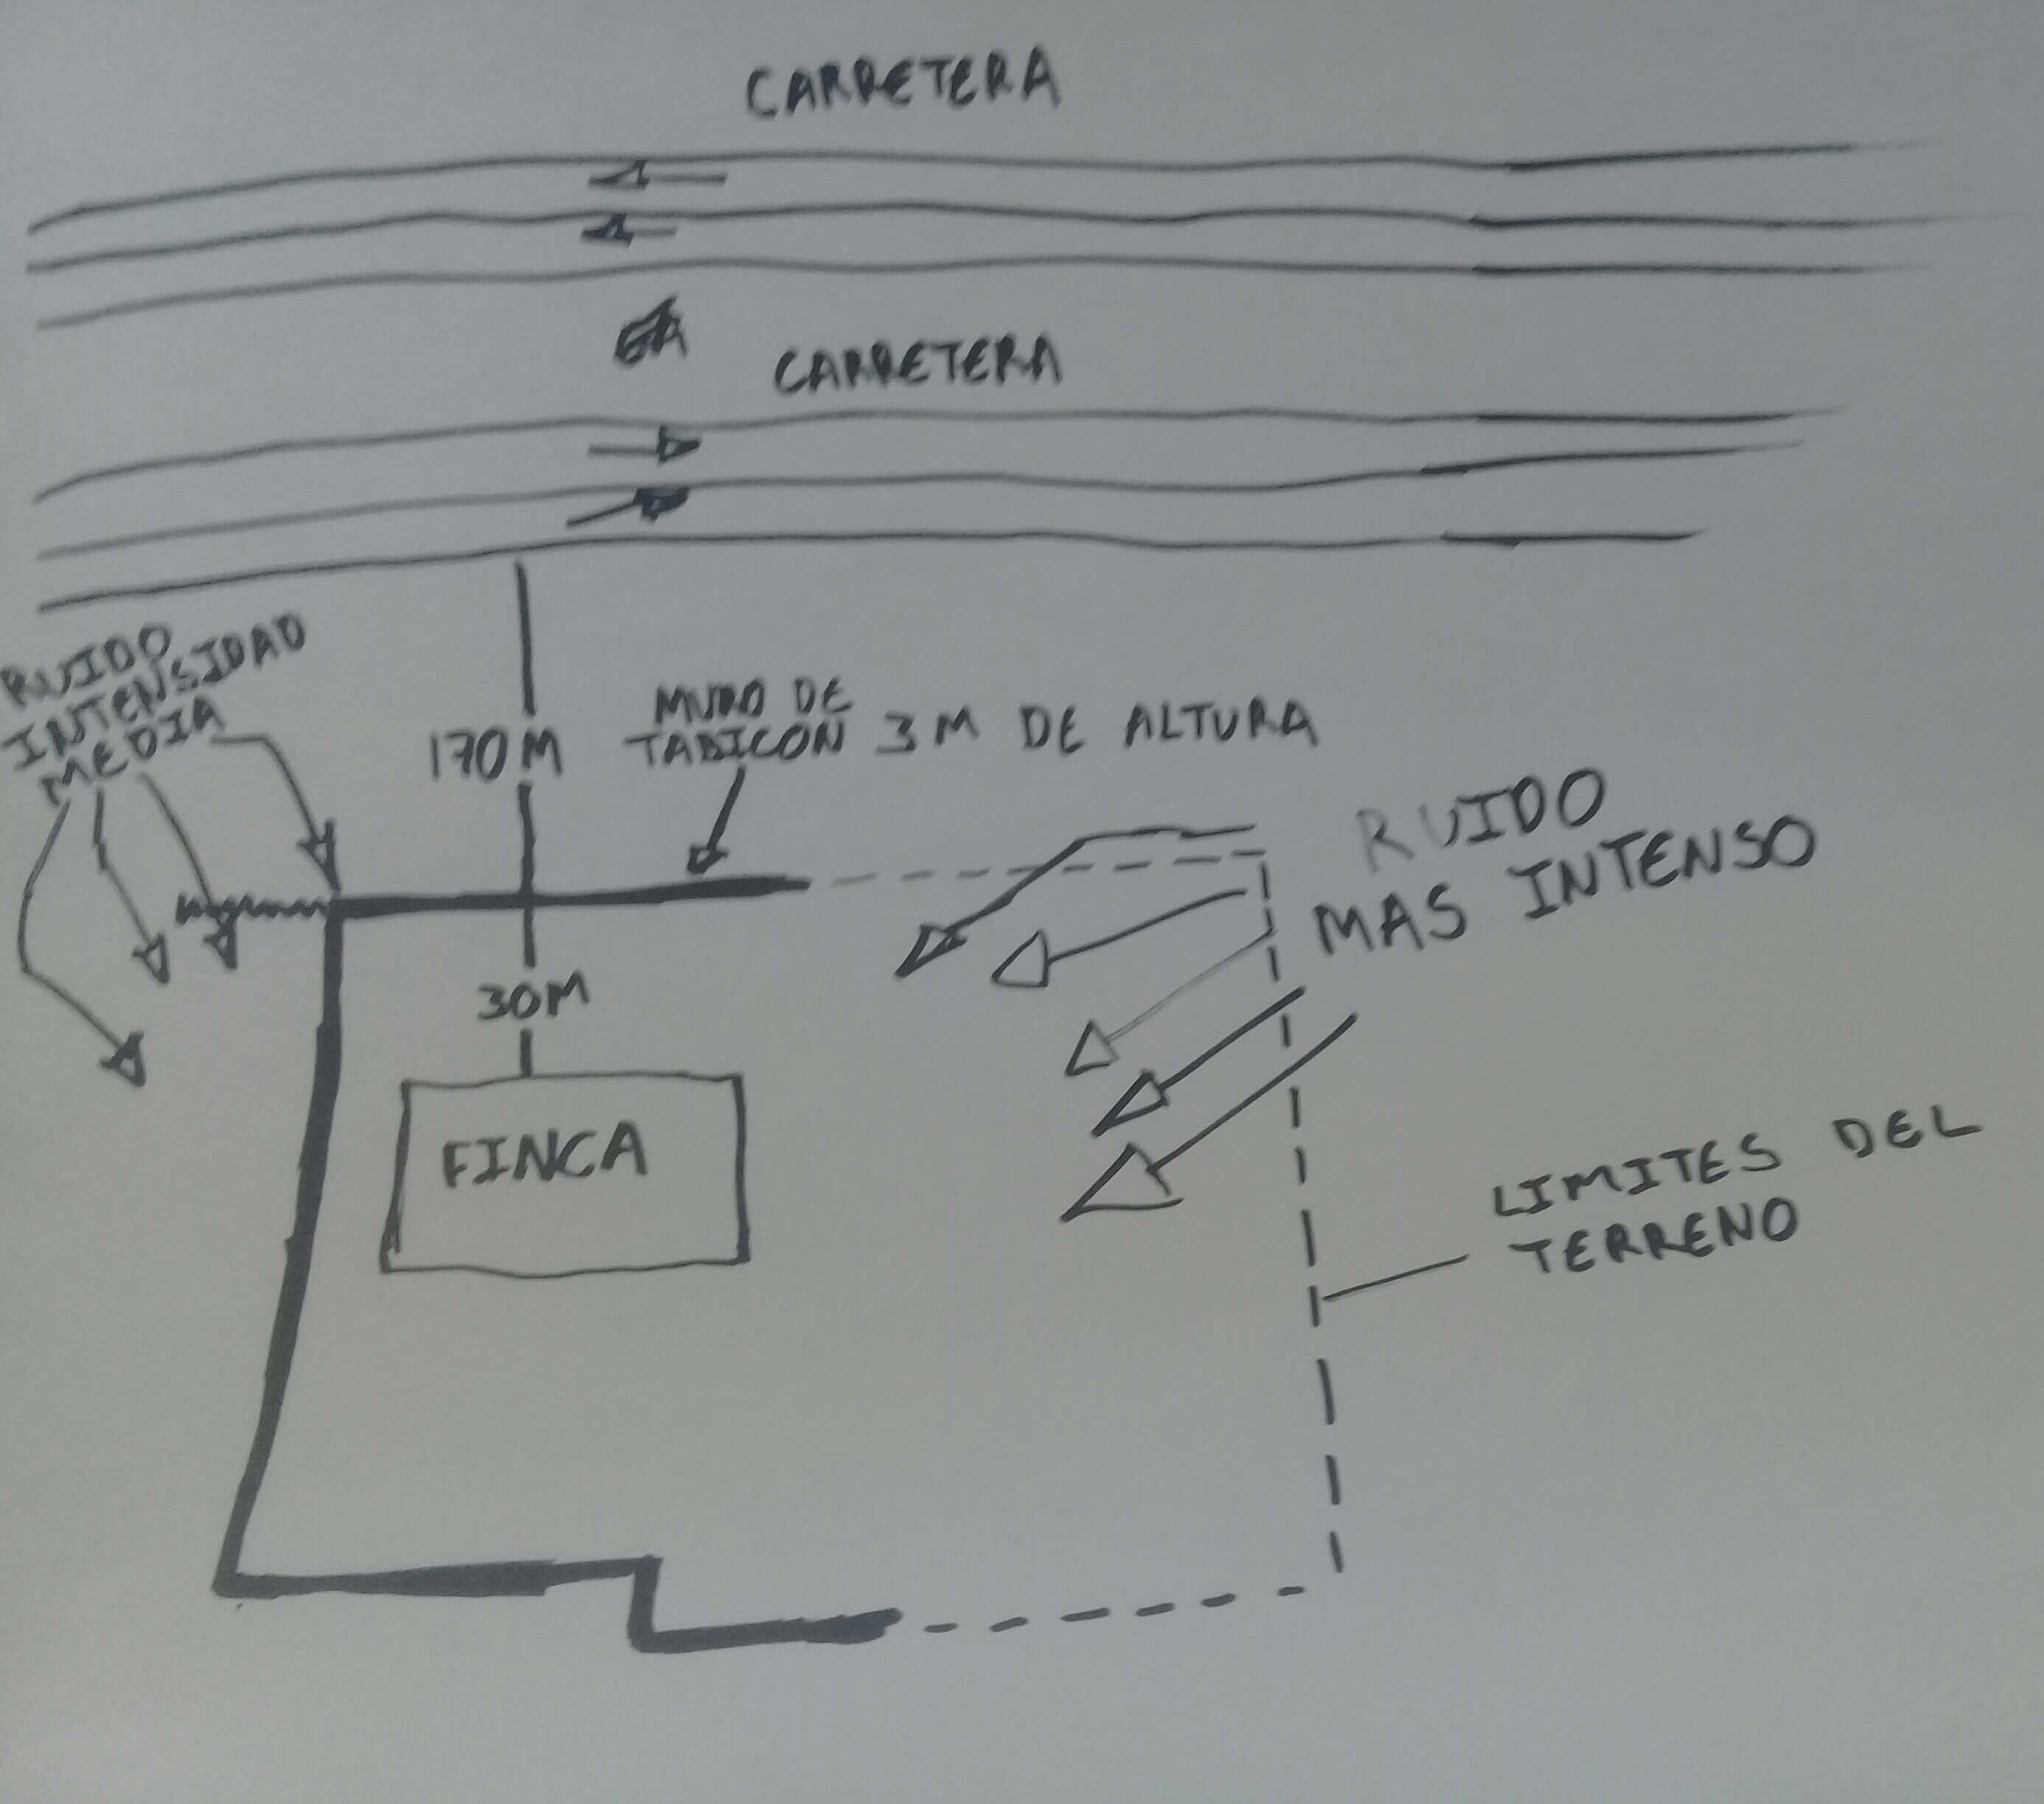 CARRETERA
CARRETERA
RUIDO
INTENSIDAD
MEDIA
170M
MURO DE
TABICON 3M DE ALTURA
RUIDO
MAS INTENSO
30M
FINCA
LIMITES DEL
TERRENO